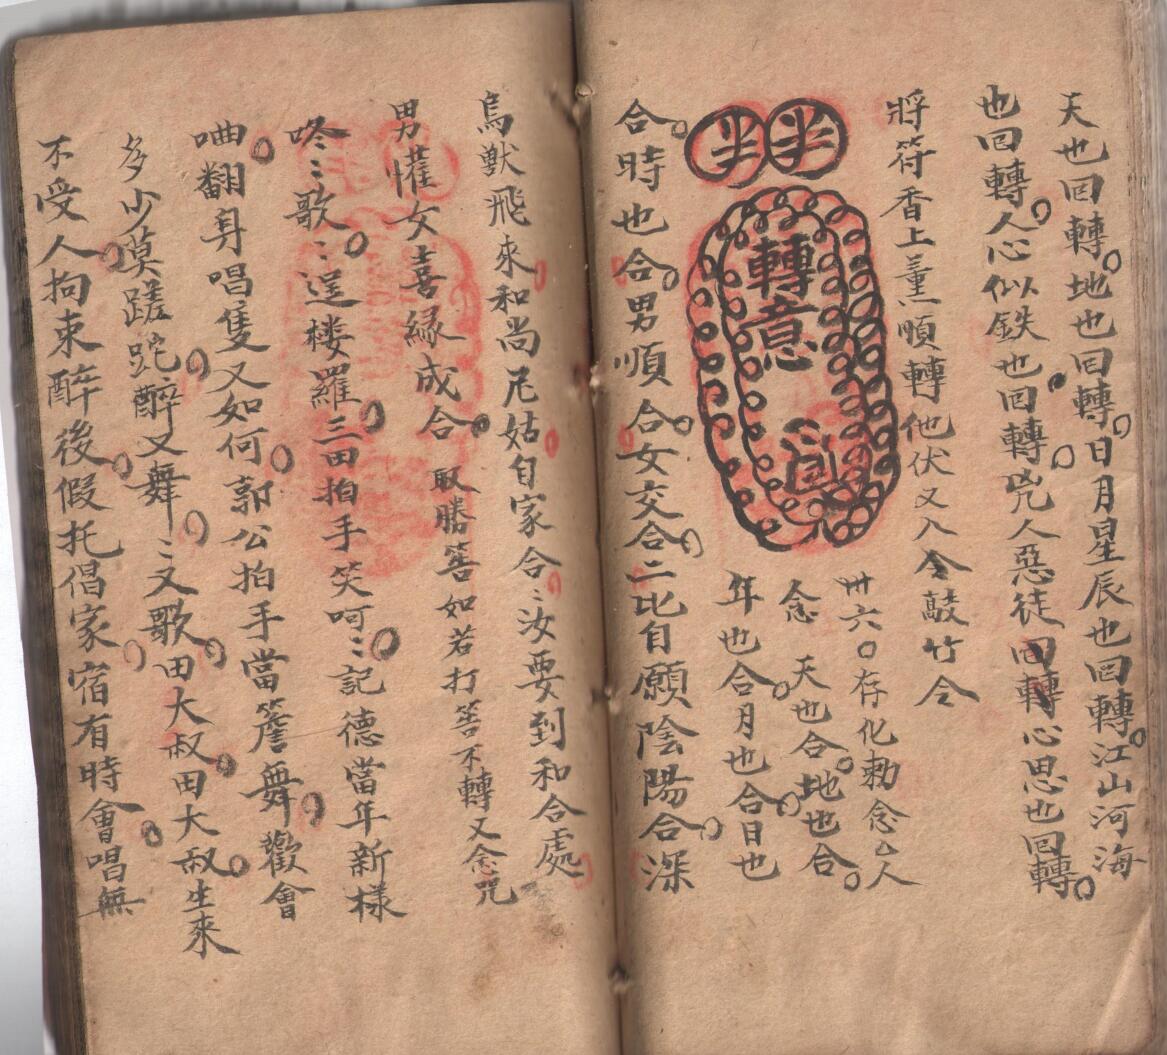 天也回轉地也回轉日月星辰也回轉江山河海
也回轉人心似鉄也回轉兇人惡徒回轉心思也回轉
將符香上薰順轉他伏又入令敲竹令
半半
轉意
卅六〇存化勅念厶人
念 天也合地也合
年也合月也合日也
合時也合男順合女交合二比自願陰陽合深
鳥獸飛來和尚尼姑自家合〻汝要到和合處
男懽女喜緣成合 取勝筶如若打筶不轉又念咒
咚〻歌〻逞楼羅三田拍手笑呵〻記德當年新樣
㖆翻身唱隻又如何郭公拍手當簷舞歡會
多少莫蹉跎醉又舞〻又歌田大叔田大叔生來
不受人拘束醉後假托倡家宿有時會唱無